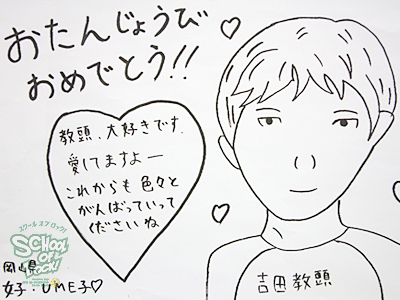 おたんじょうび
おめでとう!!
教頭、大好きです。
愛してますよー
これからも色々と
がんばっていって
くださいね
スクールオブロック!
SCHOOL
OF
ROCK!
岡山県
女子・UME子♡
吉田教頭